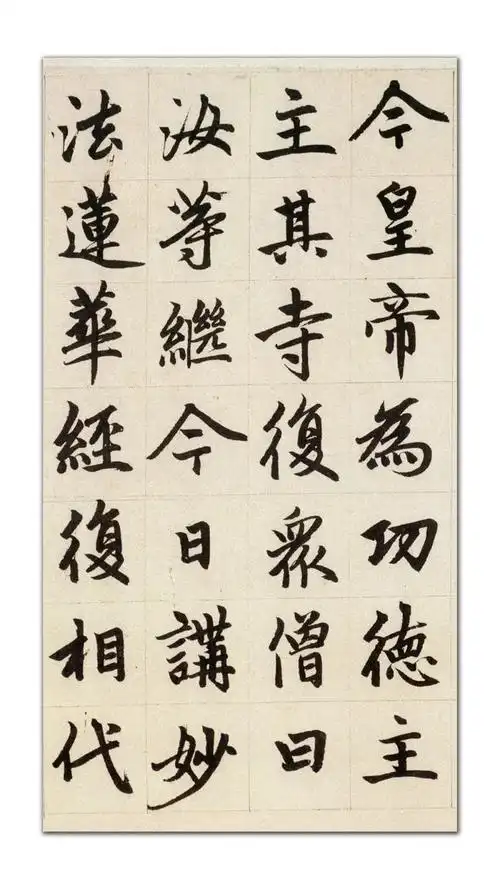 今皇帝為功德主
主其寺復眾僧曰
汝等繼今日講妙
法蓮華經復相代